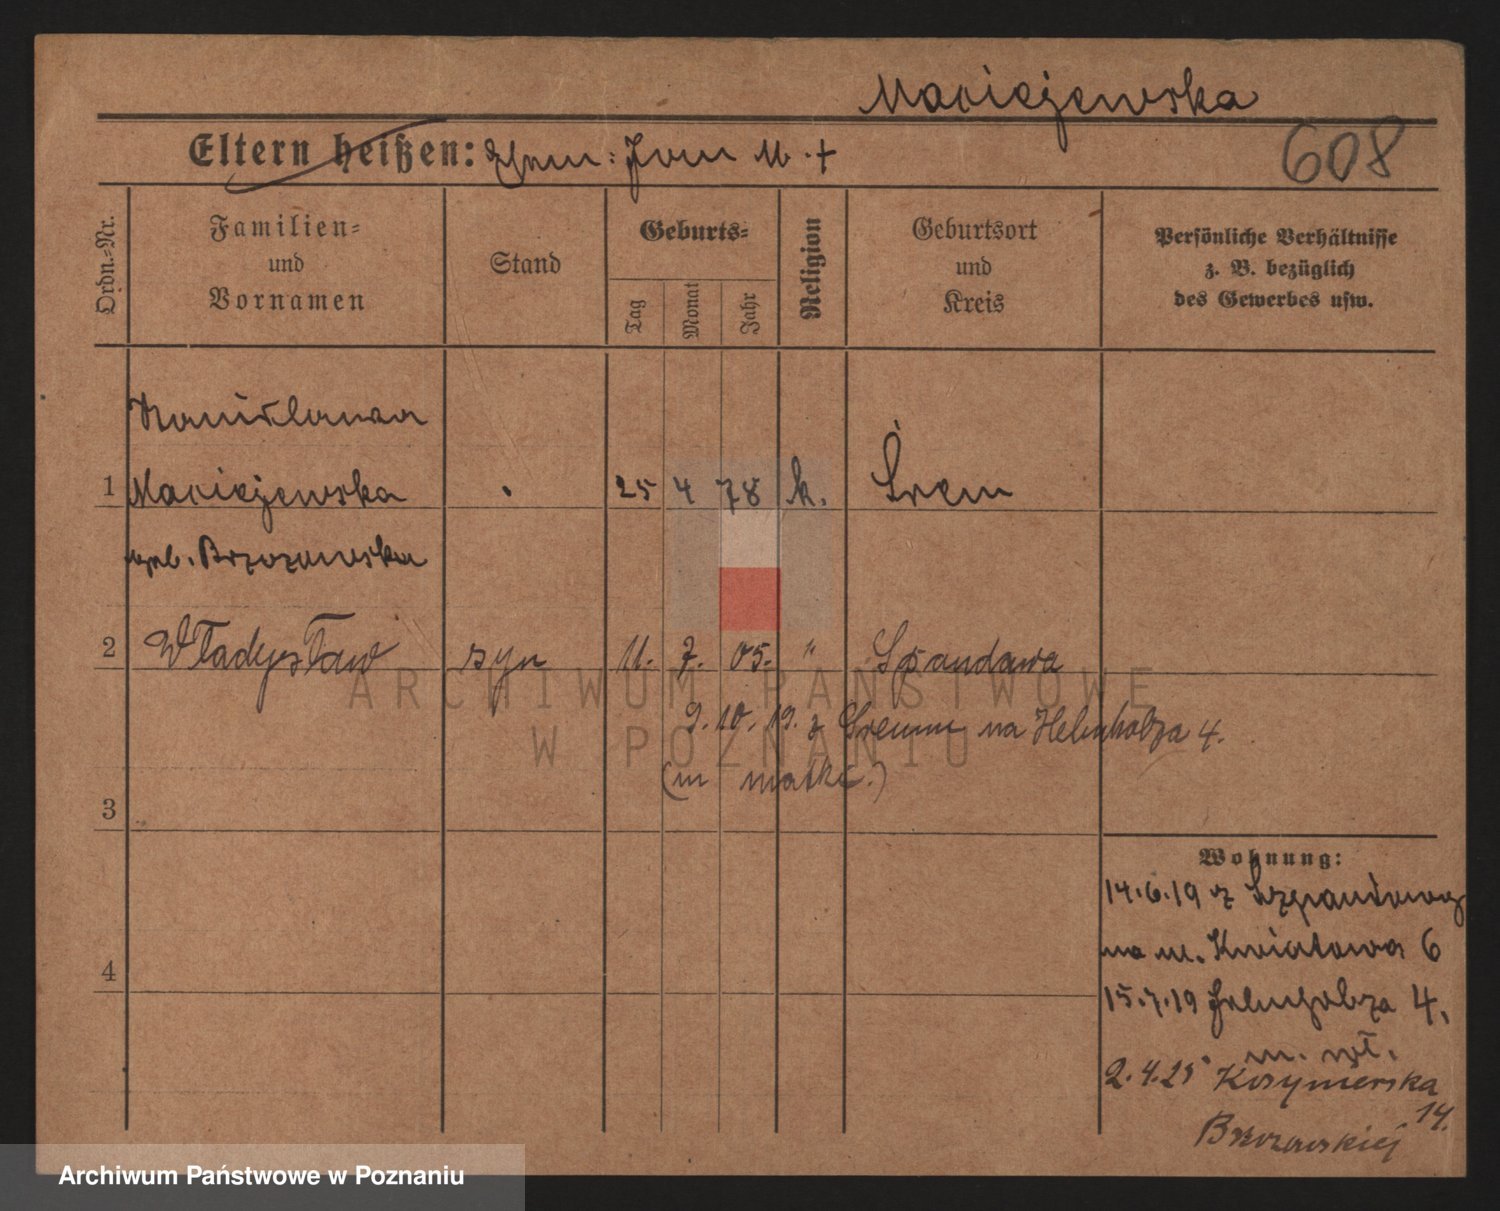 Maciejewska
608
Eltern heißen: Ehem: Jan M. +
Ordn.-Nr.
Familien- und Vornamen
Stand
Geburts-
Tag
Monat
Jahr
Religion
Geburtsort und Kreis
Persönliche Verhältnisse
z. B. bezüglich
des Gewerbes usw.
Stanisława
1 Maciejewska 25 4 78 k. Śrem
geb. Brzozowska
2 Władysław syn 11. 7. 05. " Spandawa
9.10.19. z Śremu na Helmholza 4.
3
4
Wohnung:
14.6.19 z
na ul. Kwiatowa 6
15.7.19 Helmholza 4.
2.4.25
14.
Brzozowskiej
ARCHIWUM PAŃSTWOWE
W POZNANIU
Archiwum Państwowe w Poznaniu